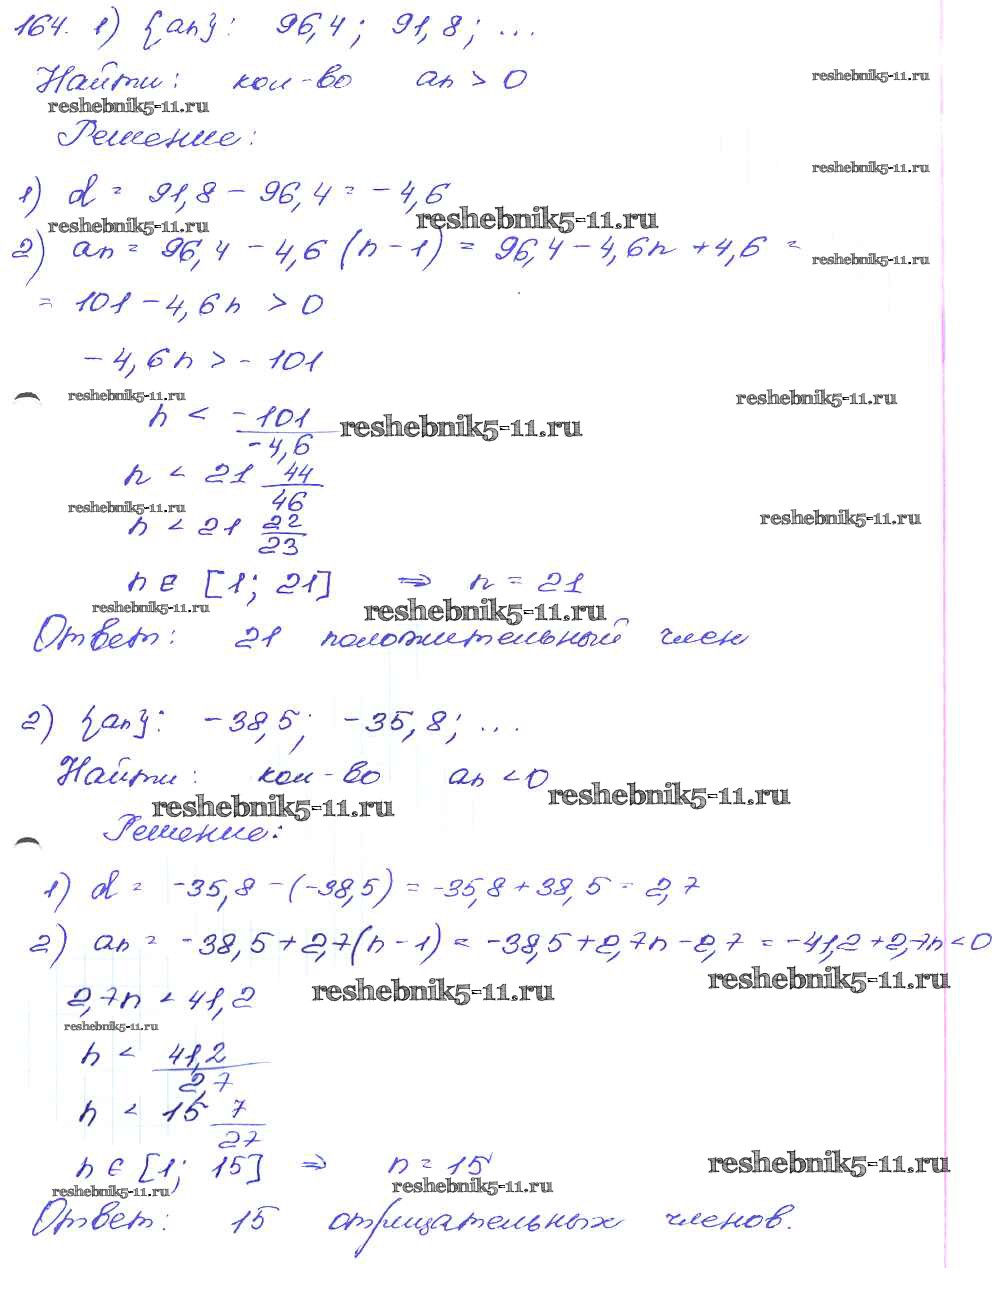 164. 1) {an}: 96,4; 91,8; ...
Найти: кол-во an > 0
reshebnik5-11.ru
reshebnik5-11.ru
Решение:
reshebnik5-11.ru
1) d = 91,8 - 96,4 = -4,6
reshebnik5-11.ru reshebnik5-11.ru
2) an = 96,4 - 4,6 (n - 1) = 96,4 - 4,6n + 4,6 =
reshebnik5-11.ru
= 101 - 4,6n > 0
-4,6n > - 101
reshebnik5-11.ru reshebnik5-11.ru
n < -101 / -4,6
reshebnik5-11.ru
n < 21 44/46
reshebnik5-11.ru reshebnik5-11.ru
n < 21 22/23
n ∈ [1; 21] ⇒ n = 21
reshebnik5-11.ru reshebnik5-11.ru
Ответ: 21 положительный член
2) {an}: -38,5; -35,8; ...
Найти: кол-во an < 0
reshebnik5-11.ru reshebnik5-11.ru
Решение:
1) d = -35,8 - (-38,5) = -35,8 + 38,5 = 2,7
2) an = -38,5 + 2,7(n - 1) = -38,5 + 2,7n - 2,7 = -41,2 + 2,7n < 0
reshebnik5-11.ru reshebnik5-11.ru
2,7n < 41,2
reshebnik5-11.ru
n < 41,2 / 2,7
n < 15 7/27
n ∈ [1; 15] ⇒ n = 15
reshebnik5-11.ru
reshebnik5-11.ru reshebnik5-11.ru
Ответ: 15 отрицательных членов.